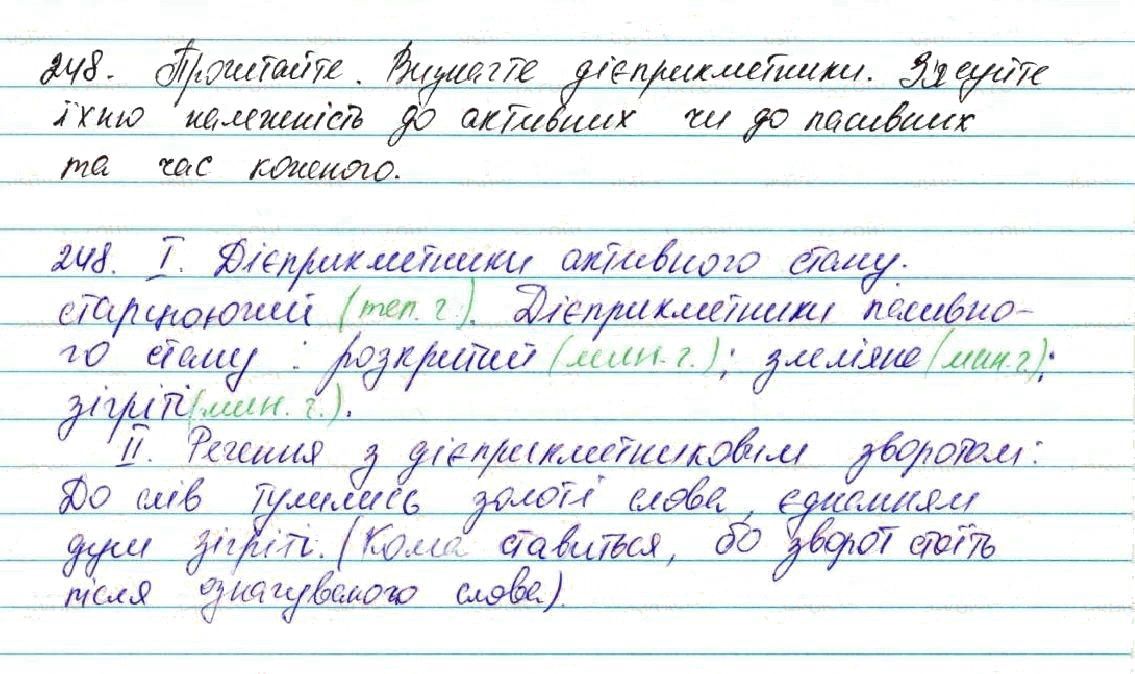 248. Прочитайте. Визначте дієприкметники. З'ясуйте
їхню належність до активних чи до пасивних
та час кожного.
248. I. Дієприкметники активного стану.
(теп. ч.). Дієприкметники пасивно-
го стану : розкритий (мин. ч.); змеліяне (мин. ч.);
зігріті (мин. ч.).
II. Речення з дієприкметниковим зворотом:
До слів тулились золоті слова, єднанням
душ зігріті. (Кома ставиться, бо зворот стоїть
після означуваного слова).